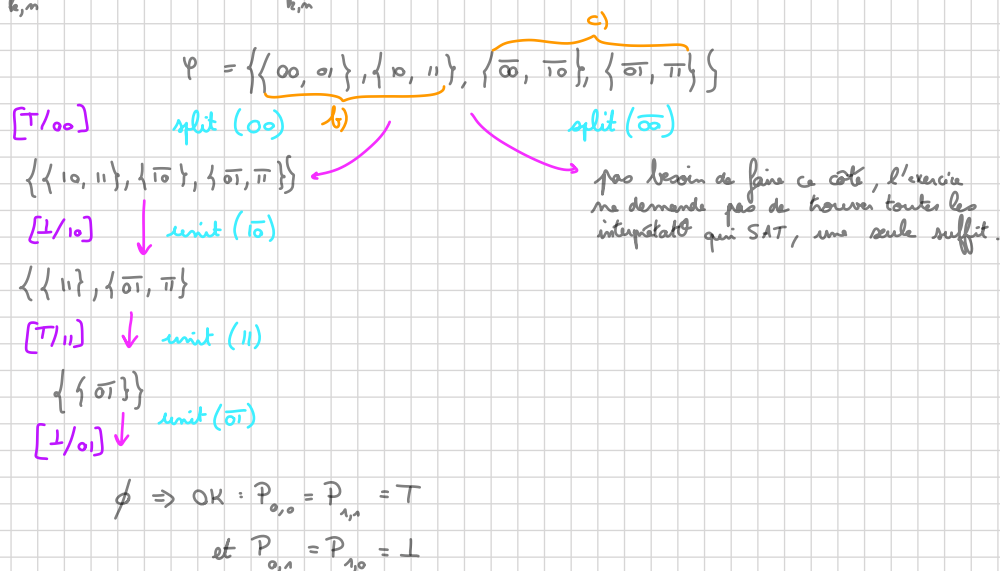 k,n k,n
c)
φ = {{00, 01}, {10, 11}, {0̅0̅, 1̅0̅}, {0̅1̅, 1̅1̅}}
b)
[T/00] split (00) split (0̅0̅)
{{10, 11}, {1̅0̅}, {0̅1̅, 1̅1̅}}
pas besoin de faire ce côté, l'exercice
ne demande pas de trouver toutes les
interprétat° qui SAT, une seule suffit.
[⊥/10] unit (1̅0̅)
{{11}, {0̅1̅, 1̅1̅}
[T/11] unit (11)
{{0̅1̅}}
[⊥/01] unit (0̅1̅)
∅ => OK : P0,0 = P1,1 = T
et P0,1 = P1,0 = ⊥